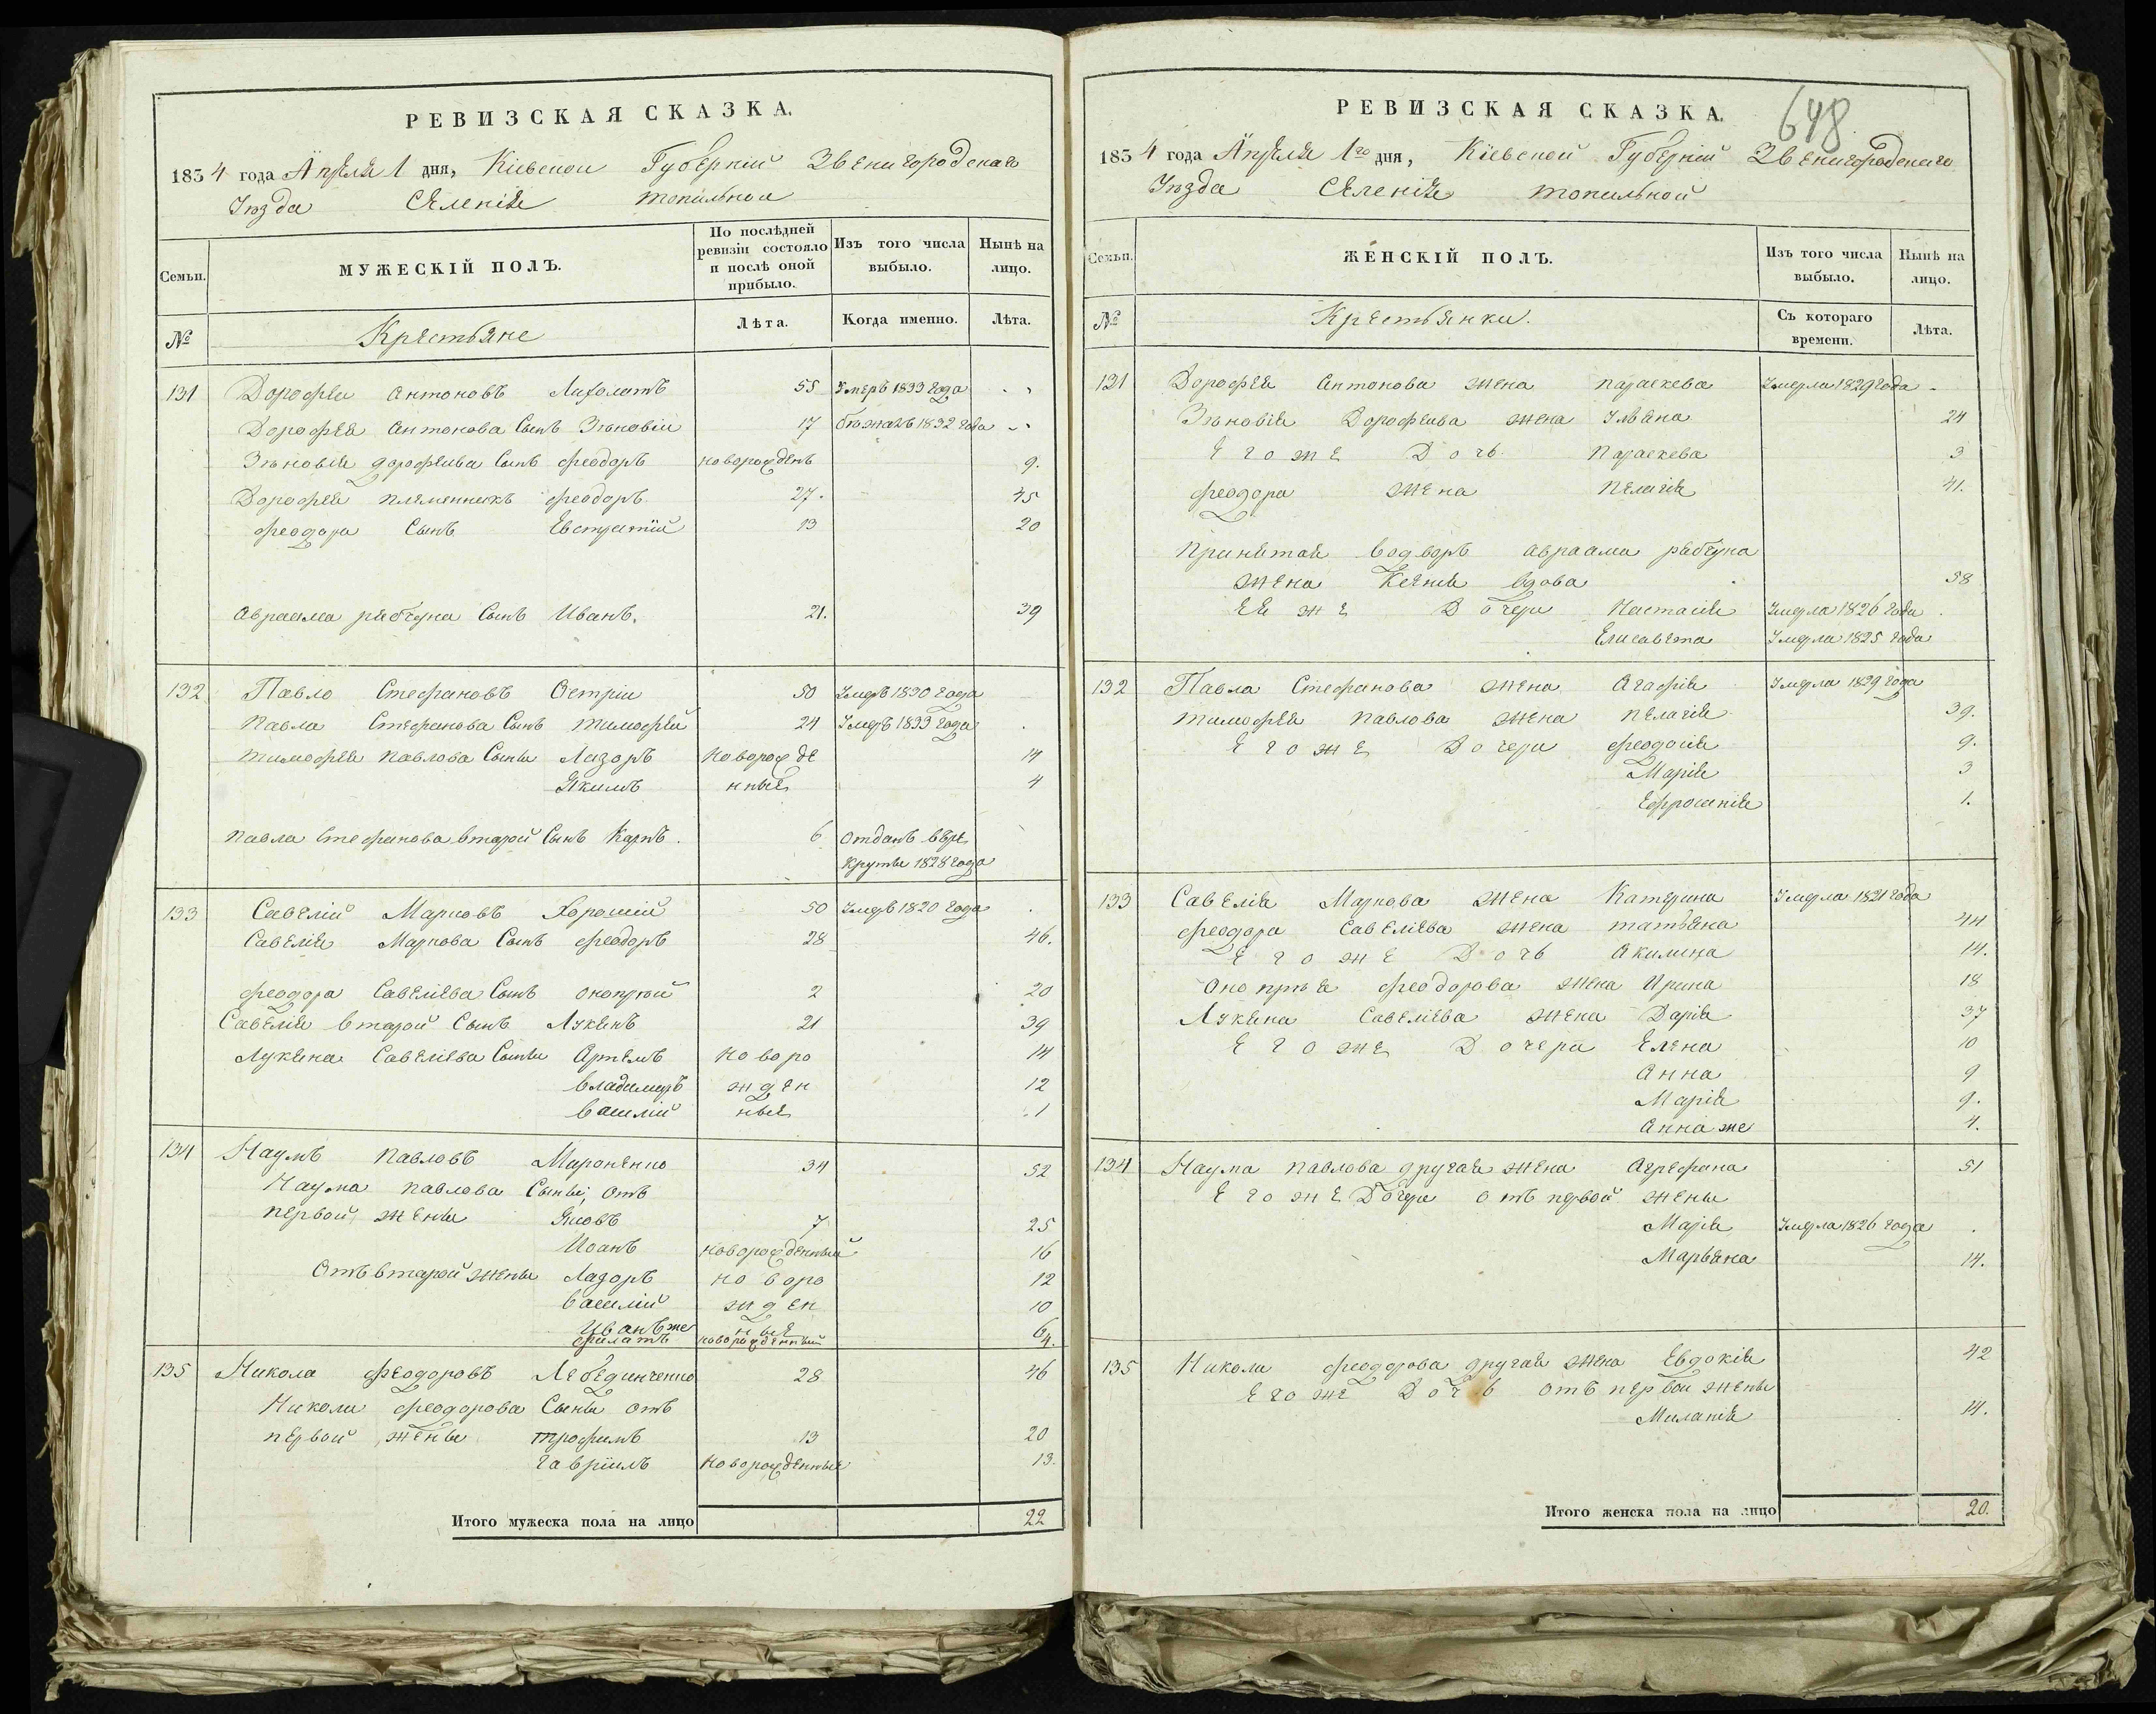 РЕВИЗСКАЯ СКАЗКА.
1834 года Апреля 1 дня, Кіевской Губерніи Звенигородскаго
Уѣзда Селенія Топильной
Семьи. МУЖЕСКІЙ ПОЛЪ. По послѣдней ревизіи состояло и послѣ оной прибыло. Изъ того числа выбыло. Нынѣ на лицо.
№ Крестьяне Лѣта. Когда именно. Лѣта.
131 Дорофей Антоновъ Лихолатъ 55 Умеръ 1833 года
Дорофея Антонова Сынъ Зѣновій 17 бѣжалъ 1832 года
Зѣновія дорофеива Сынъ феодоръ новорожденъ 9.
Дорофея племенникъ феодоръ 27. 45
феодора Сынъ Евстратій 13 20
Авраама рябчуна Сынъ Иванъ. 21. 39
132 Павло Стефановъ Остріи 50 Умеръ 1830 года
Павла Стефанова Сынъ тимофей 24 Умеръ 1833 года
тимофея павлова Сыны Лазоръ новорожде 14
Якимъ нные 4
павла Стефанова второй Сынъ Карпъ. 6 отданъ върѣ
круты 1828 года
133 Савелій Марковъ Хорошій 50 Умеръ 1820 года
Савелія Маркова Сынъ феодоръ 28 46.
феодора Савеліева Сынъ онопрій 2 20
Савелія второй Сынъ Лукянъ 21 39
Лукяна Савеліева Сыны Артемъ новоро 14
владимиръ жден 12
василій ные 1
134 Наумъ павловъ Мироненко 34 52
Наума павлова Сыны, отъ
первой жены Яковъ 7 25
Иоанъ новорожденный 16
Отъ второй жены Лазоръ новоро 12
василій жден 10
Иванъ же ные 6
филатъ новорожденный 4.
135 Никола феодоровъ Лебединченко 28 46
Николи феодорова Сыны отъ
первой жены трофимъ 13 20
гавріилъ новорожденные 13.
Итого мужеска пола на лицо 22
648
РЕВИЗСКАЯ СКАЗКА.
1834 года Апреля 1го дня, Кіевской Губерніи Звенигородскаго
Уѣзда Селенія топильной
Семьи. ЖЕНСКІЙ ПОЛЪ. Изъ того числа выбыло. Нынѣ на лицо.
№ Крестьянки. Съ котораго времени. Лѣта.
131 Дорофея Антонова жена параскева Умерла 1829 года
Зѣновія Дорофеива жена Уляна 24
Егоже Дочь параскева 3
феодора жена пелагія 41.
принятая водворъ авраама рябчуна
жена Ксенія вдова 58
Ея же Дочери Настасія Умерла 1826 года
Елисавета Умерла 1825 года
132 Павла Стефанова жена Агафія Умерла 1829 года
тимофея павлова жена пелагія 39.
Егоже Дочери феодосія 9.
Марія 3
Ефросинія 1.
133 Савелія Маркова жена Катерина Умерла 1821 года
феодора Савеліева жена татьяна 44
Егоже Дочь Акилина 14.
Онопрѣя феодорова жена Ирина 18
Лукяна Савеліева жена Дарія 37
Егоже Дочери Елена 10
Анна 9
Марія 9.
Анна же 4.
134 Наума павлова другая жена Агрефина 51
Егоже Дочери отъ первой жены
Марія Умерла 1826 года
Марьяна 14.
135 Никола феодорова другая жена Евдокія 42
Егоже Дочь отъ первой жены
Миланія 14.
Итого женска пола на лицо 20.